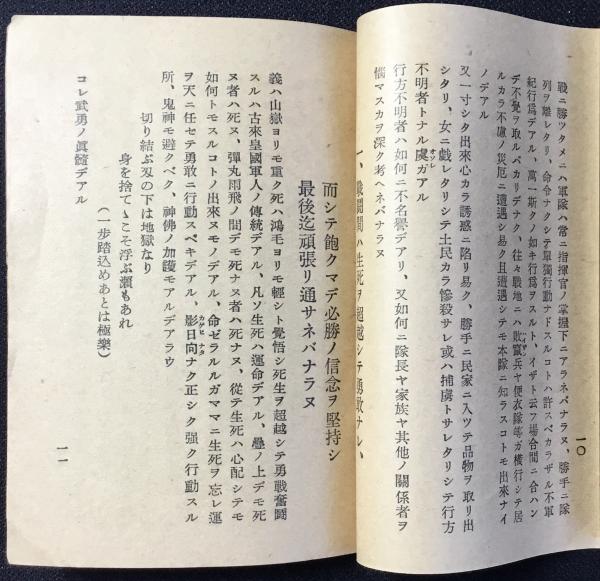 戰ニ勝ツタメニハ軍隊ハ常ニ指揮官ノ掌握下ニアラネバナラヌ、勝手ニ隊
列ヲ離レタリ、命令ナクシテ單獨行動ナドスルコトハ許スベカラザル不軍
紀行爲デアル、萬一斯クノ如キ行爲ヲスルト、イザト云フ場合間ニ合ハン
デ不覺ヲ取ルバカリデナク、往々戰地ニハ敗竄兵ヤ便衣隊等ガ横行シテ居
ルカラ不慮ノ災厄ニ遭遇シ易ク且遭遇シテモ本隊ニ知ラスコトモ出來ナイ
ノデアル
又一寸シタ出來心カラ誘惑ニ陷リ易ク、勝手ニ民家ニ入ツテ品物ヲ取リ出
シタリ、女ニ戯レタリシテ土民カラ慘殺サレ或ハ捕虜トサレタリシテ行方
不明者トナル虞ガアル
オソレ
行方不明者ハ如何ニ不名譽デアリ、又如何ニ隊長ヤ家族ヤ其他ノ關係者ヲ
惱マスカヲ深ク考ヘネバナラヌ
一〇
一、戰鬪間ハ生死ヲ超越シテ勇敢ナレ、
而シテ飽クマデ必勝ノ信念ヲ堅持シ
最後迄頑張リ通サネバナラヌ
義ハ山嶽ヨリモ重ク死ハ鴻毛ヨリモ輕シト覺悟シ死生ヲ超越シテ勇戰奮鬪
スルハ古來皇國軍人ノ傳統デアル、凡ソ生死ハ運命デアル、疊ノ上デモ死
ヌ者ハ死ヌ、彈丸雨飛ノ間デモ死ナヌ者ハ死ナヌ、從テ生死ハ心配シテモ
如何トモスルコトノ出來ヌモノデアル、命ゼラルルガママニ生死ヲ忘レ運
ヲ天ニ任セテ勇敢ニ行動スベキデアル、影日向ナク正シク强ク行動スル
カゲヒナタ
所、鬼神モ避クベク、神佛ノ加護モアルデアラウ
切り結ぶ刃の下は地獄なり
身を捨てゝこそ浮ぶ瀨もあれ
（一步踏込めあとは極樂）
コレ武勇ノ眞髓デアル
一一